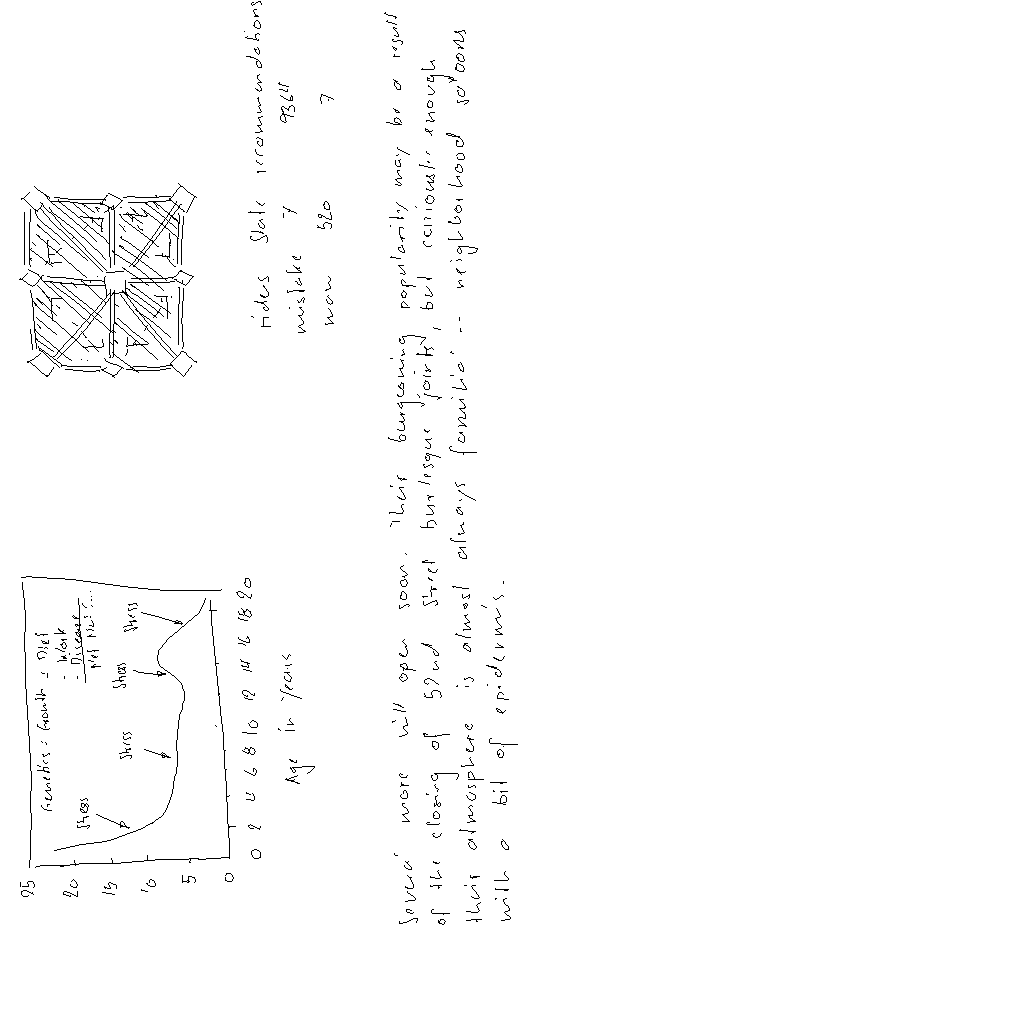 Genetics = Growth = Diet
- Work
- Disease
Stress
Stress
Stress
Stress
25
20
15
10
5
0
0 2 4 6 8 10 12 14 16 18 20
Age in Years
rides State recommendations
mistake 7 9364
now 520 7
Several more will open soon. Their burgeoning popularity may be a result
of the closing of 52nd Street burlesque joints, but curiously enough
their atmosphere is almost always familial -- neighborhood saloons
with a bit of epidermis.